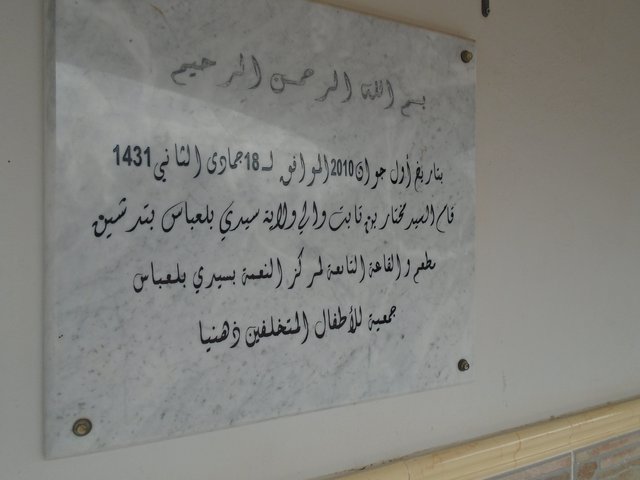 بسم الله الرحمن الرحيم
بتاريخ أول جوان 2010 الموافق لـ 18 جمادى الثاني 1431
قام السيد مختار بن ثابت والي ولاية سيدي بلعباس بتدشين
مطعم والقاعة التابعة لمركز النعمة بسيدي بلعباس
جمعية للأطفال المتخلفين ذهنيا